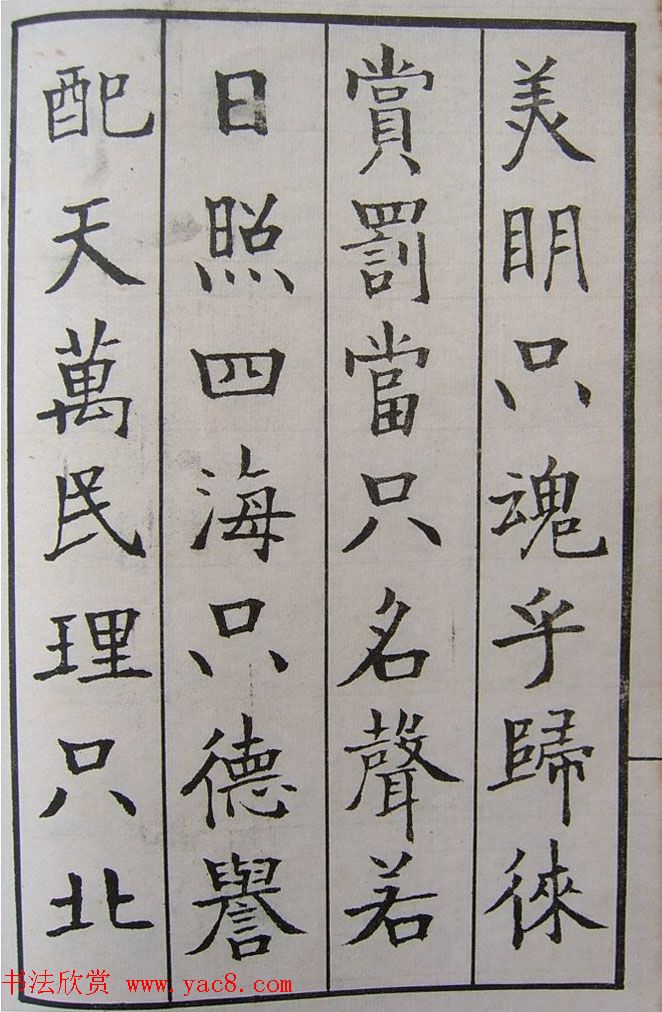 美明只魂乎歸徠
賞罰當只名聲若
日照四海只德譽
配天萬民理只北
书法欣赏 www.yac8.com